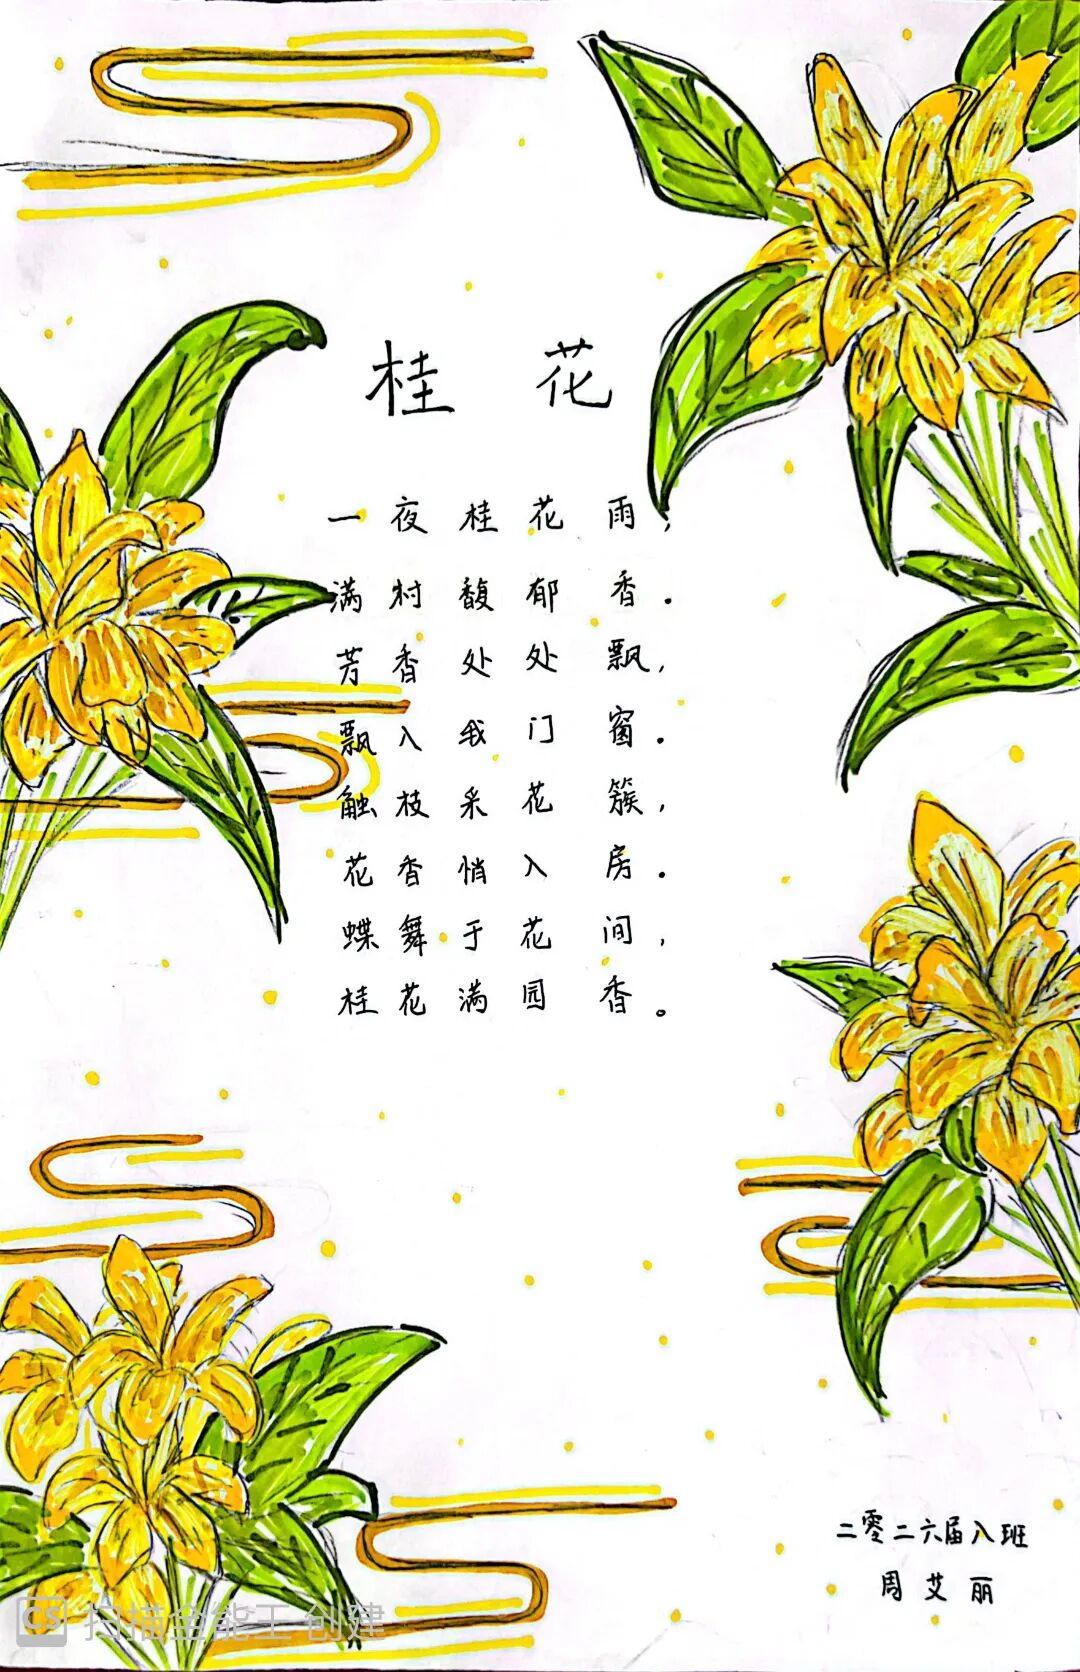 桂花
一夜桂花雨，
满村馥郁香.
芳香处处飘，
飘入我门窗.
触枝采花簇，
花香悄入房.
蝶舞于花间，
桂花满园香。
二零二六届八班
周艾丽
CS 扫描全能王 创建